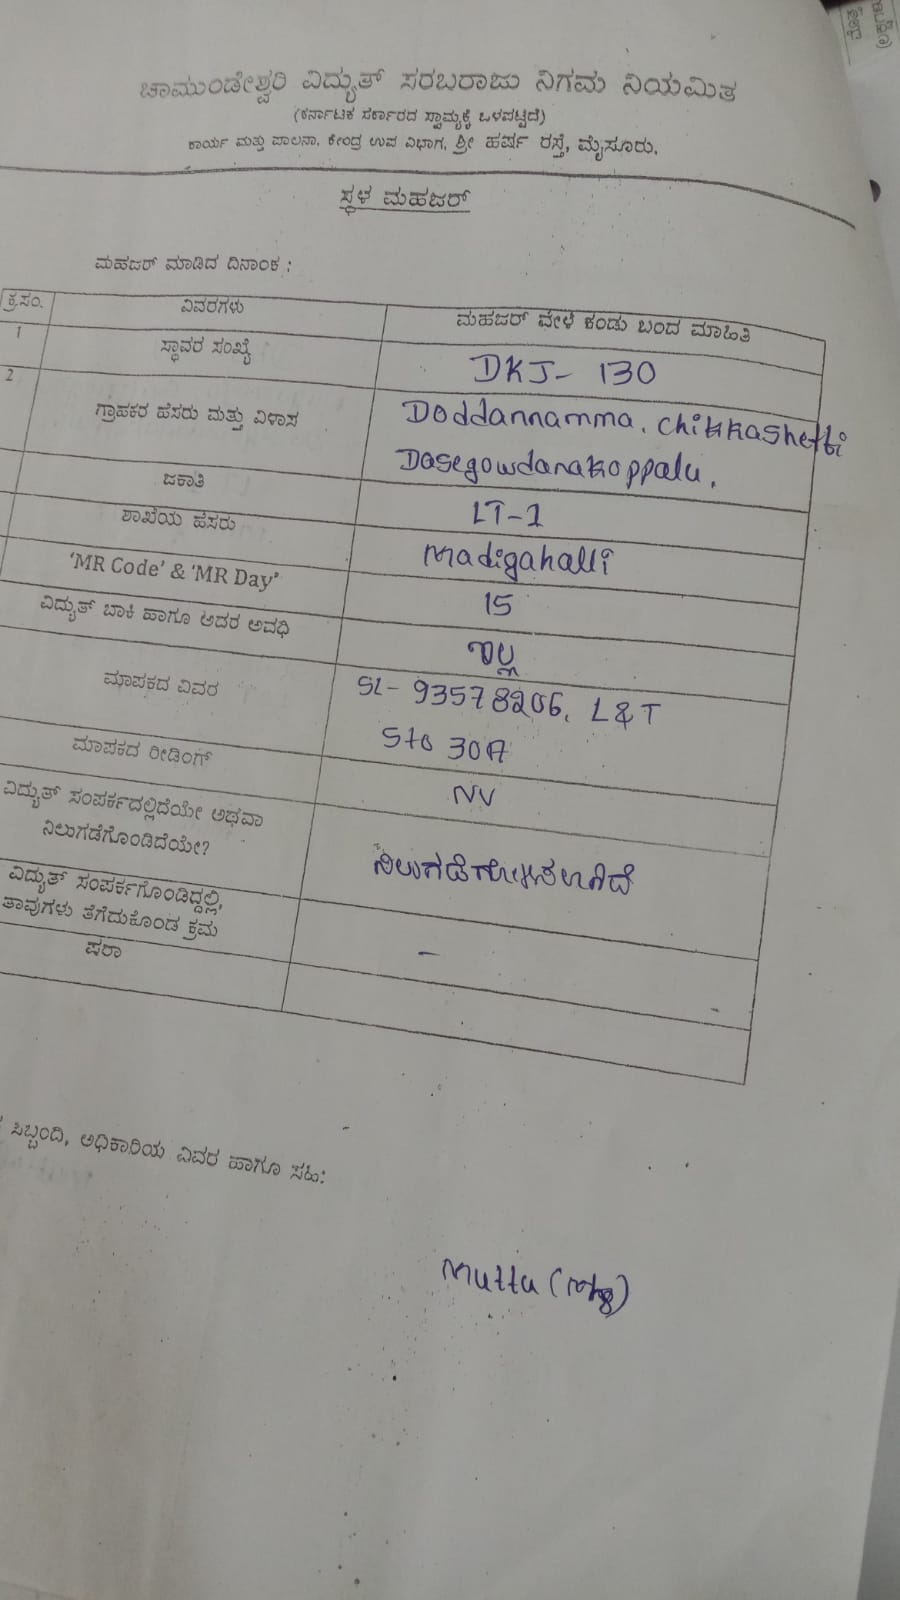 ಚಾಮುಂಡೇಶ್ವರಿ ವಿದ್ಯುತ್ ಸರಬರಾಜು ನಿಗಮ ನಿಯಮಿತ
(ಕರ್ನಾಟಕ ಸರ್ಕಾರದ ಸ್ವಾಮ್ಯಕ್ಕೆ ಒಳಪಟ್ಟಿದೆ)
ಕಾರ್ಯ ಮತ್ತು ಪಾಲನಾ, ಕೇಂದ್ರ ಉಪ ವಿಭಾಗ, ಶ್ರೀ ಹರ್ಷ ರಸ್ತೆ, ಮೈಸೂರು.
ಸ್ಥಳ ಮಹಜರ್
ಮಹಜರ್ ಮಾಡಿದ ದಿನಾಂಕ :
ಕ್ರ.ಸಂ. ವಿವರಗಳು ಮಹಜರ್ ವೇಳೆ ಕಂಡು ಬಂದ ಮಾಹಿತಿ
1 ಸ್ಥಾವರ ಸಂಖ್ಯೆ DKJ- 130
2 ಗ್ರಾಹಕರ ಹೆಸರು ಮತ್ತು ವಿಳಾಸ Doddannamma, Chikkashetti
Dasegowdanakoppalu.
ಜಕಾತಿ LT-1
ಶಾಖೆಯ ಹೆಸರು Madigahalli
'MR Code' & 'MR Day' 15
ವಿದ್ಯುತ್ ಬಾಕಿ ಹಾಗೂ ಅದರ ಅವಧಿ ಇಲ್ಲ
ಮಾಪಕದ ವಿವರ SL- 93578206, L&T
5to 30A
ಮಾಪಕದ ರೀಡಿಂಗ್ NV
ವಿದ್ಯುತ್ ಸಂಪರ್ಕದಲ್ಲಿದೆಯೇ ಅಥವಾ
ನಿಲುಗಡೆಗೊಂಡಿದೆಯೇ?
ವಿದ್ಯುತ್ ಸಂಪರ್ಕಗೊಂಡಿದ್ದಲ್ಲಿ,
ತಾವುಗಳು ತೆಗೆದುಕೊಂಡ ಕ್ರಮ -
ಷರಾ
ಸಿಬ್ಬಂದಿ, ಅಧಿಕಾರಿಯ ವಿವರ ಹಾಗೂ ಸಹಿ:
Muttu